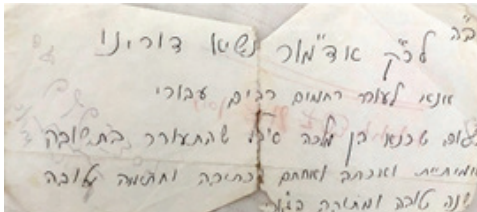 ב"ה
לכ"ק אדמו"ר נשיא דורינו
אנא לעורר רחמים רבים עבורי
בן מלכה שהתעורר בתשובה
אמיתית ואכתב ואחתם בכתיבה וחתימה טובה
שנה טובה ומתוקה